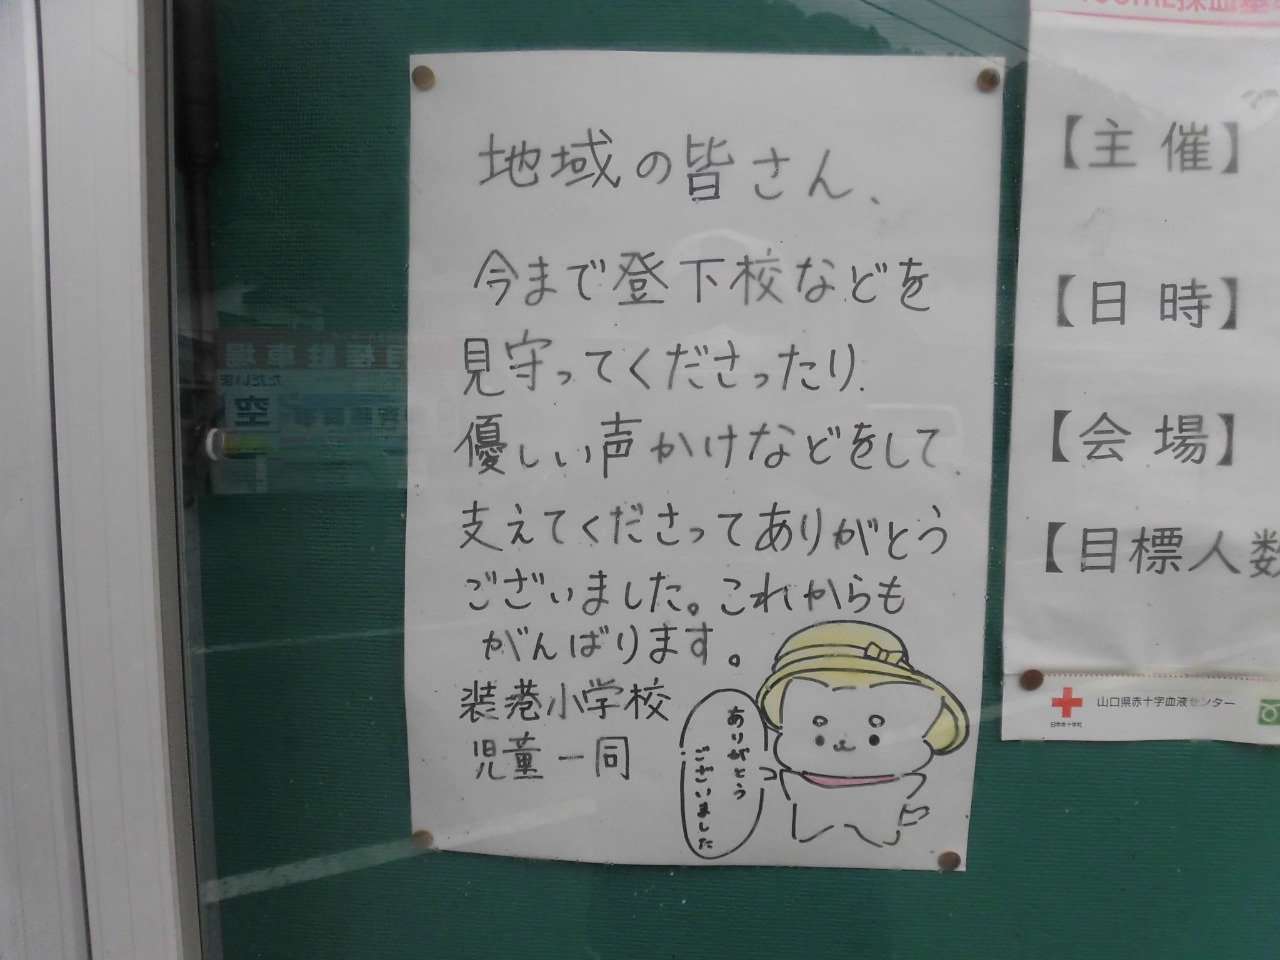 地域の皆さん、
今まで登下校などを
見守ってくださったり、
優しい声かけなどをして、
支えてくださってありがとう
ございました。これからも
がんばります。
装港小学校
児童一同
ありがとう
ございました
【主催】
【日時】
【会場】
【目標人数
日本赤十字社
山口県赤十字血液センター